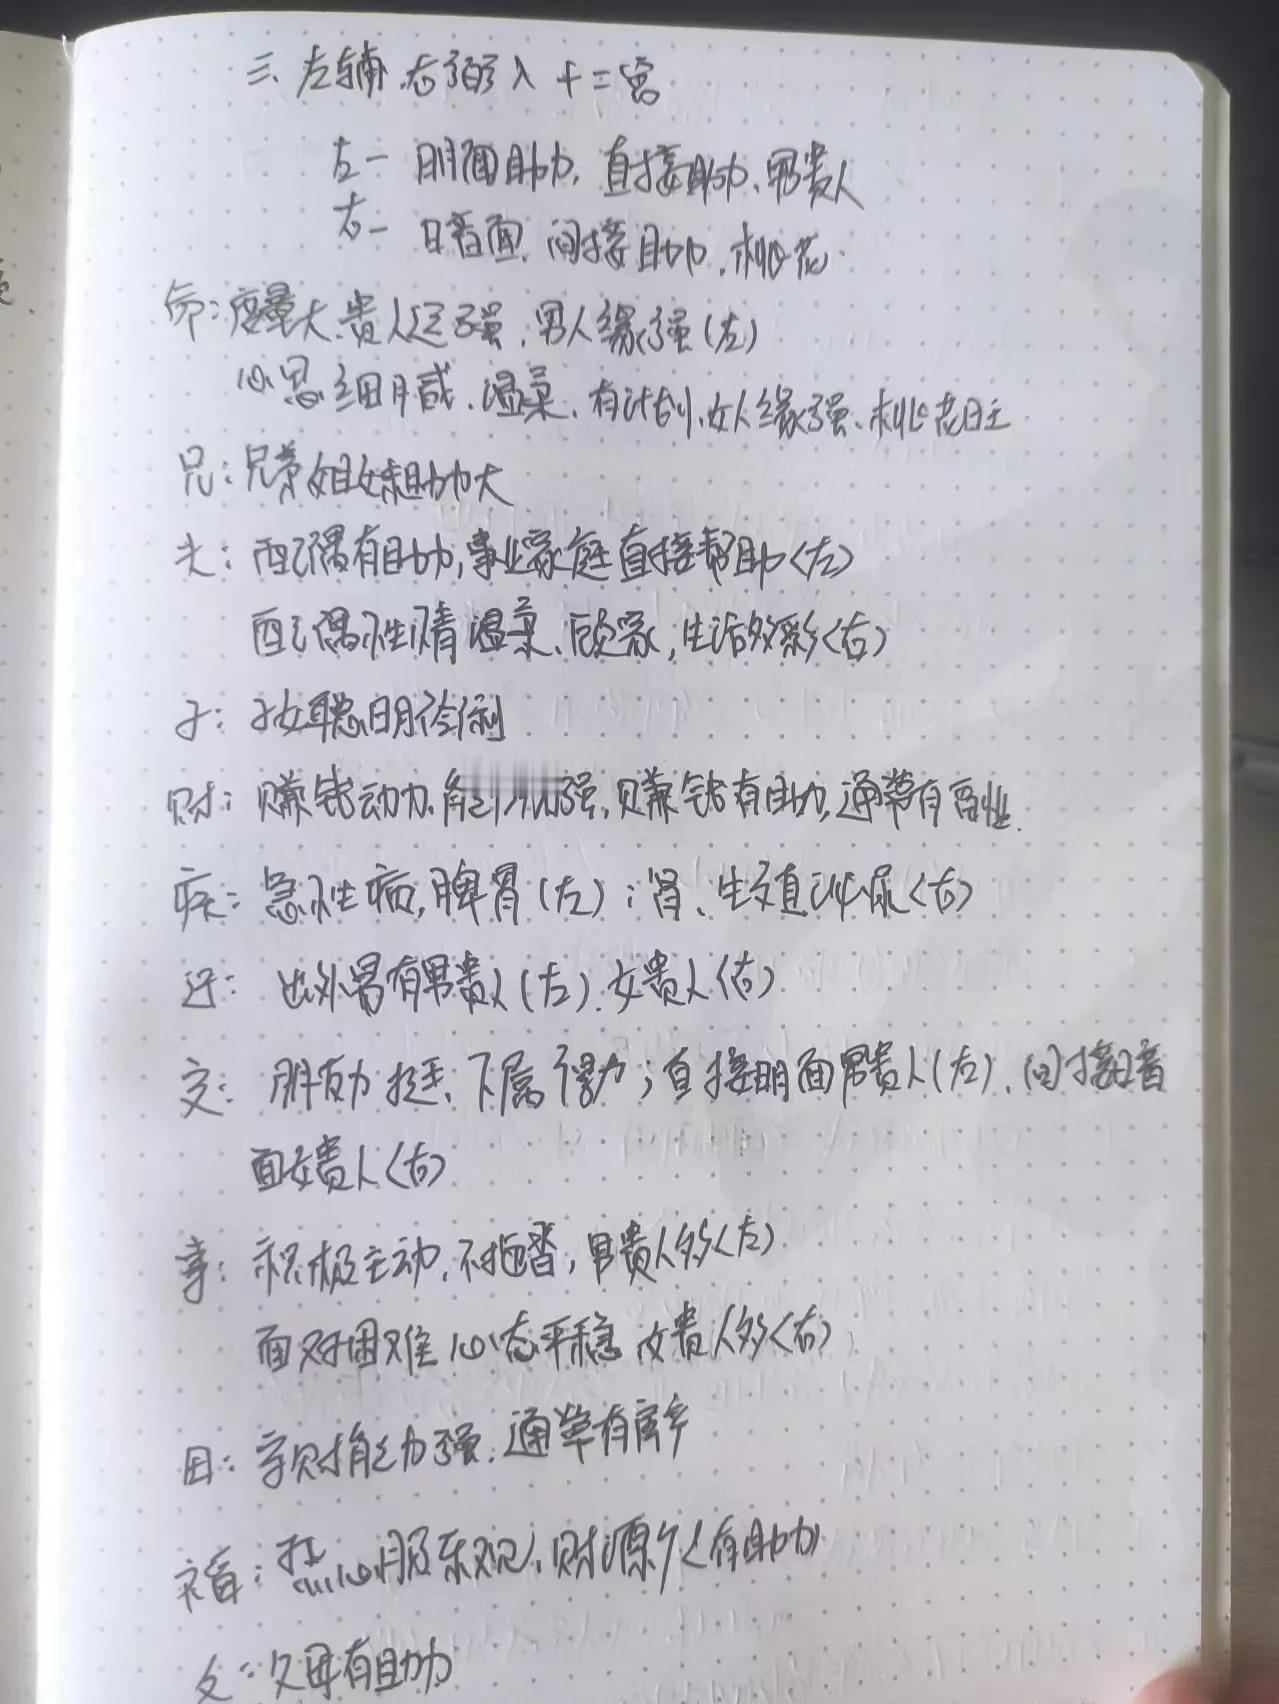 三、左辅、右弼入十二宫
左一 明面助力, 直接助力、男贵人
右一 暗面, 间接助力, 桃花
命: 度量大、贵人运强, 男人缘强(左)
心思细腻、温柔、有计划、女人缘强、桃花旺
兄: 兄弟姐妹助力大
夫: 配偶有助力, 事业家庭直接帮助<左>
配偶性情温柔、顾家, 生活多彩<右>
子: 子女聪明伶俐
财: 赚钱动力、能力强, 赚钱有助力, 通常有副业.
疾: 急性病, 脾胃(左); 肾、生殖泌尿<右>
迁: 出外易有男贵人(左)、女贵人(右)
交: 朋友力挺、下属得力; 直接明面男贵人(左)、间接暗
面女贵人<右>
事: 积极主动, 不拖沓, 男贵人多<左>
面对困难心态平稳 女贵人多<右>
田: 守财能力强, 通常有房产
福: 热心肠乐观, 财源广<有助力
父: 父母有助力